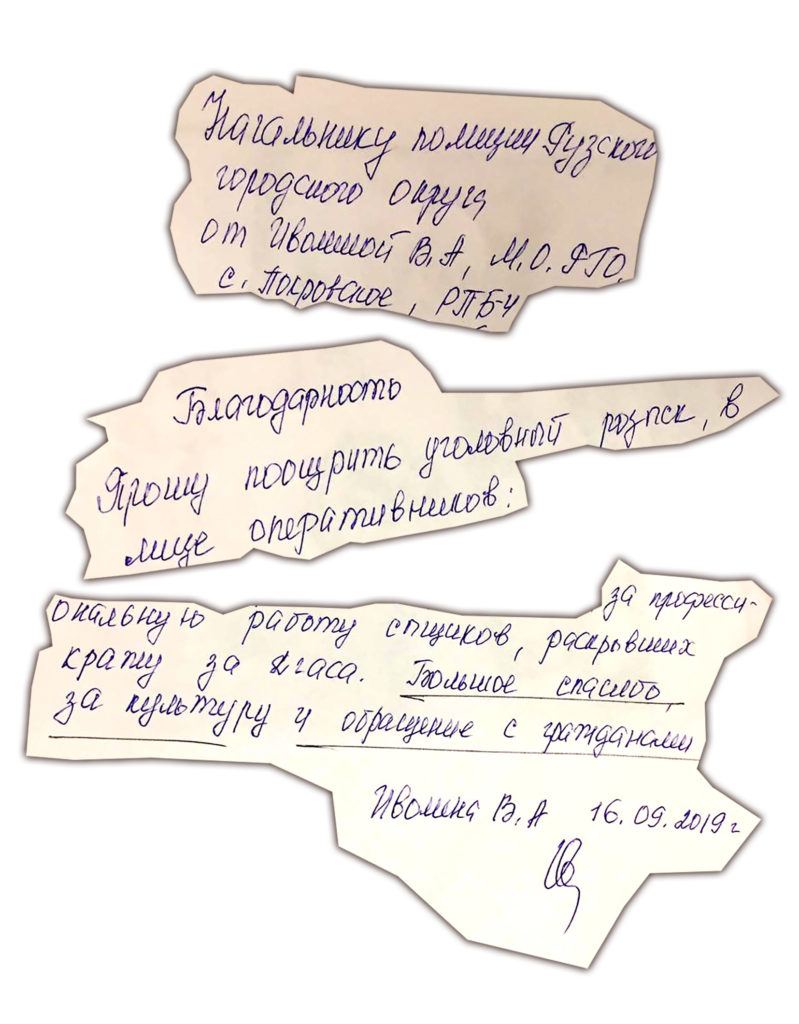 Начальнику полиции Рузского
городского округа
от Иволиной В.А, М.О. РГО,
с. Покровское, РПБ-4
Благодарность
Прошу поощрить уголовный розыск, в
лице оперативников:
за професси-
ональную работу сыщиков, раскрывших
кражу за 2 часа. Большое спасибо,
за культуру и обращение с гражданами
Иволина В.А 16.09.2019 г